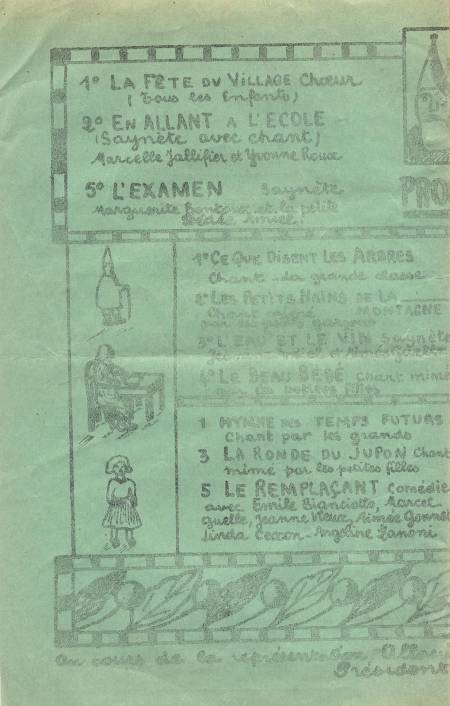 1° LA FÊTE DU VILLAGE Chœur
(Tous les Enfants)
2° EN ALLANT A L'ECOLE
(Saynète avec chant)
Marcelle Jallifier et Yvonne Roux
5° L'EXAMEN Saynète
Marguerite et la petite
PRO
1° CE QUE DISENT LES ARBRES
Chant la grande classe
2° LES PETITS NAINS DE LA
MONTAGNE
Chant mimé
par les petits garçons
3° L'EAU ET LE VIN Saynète
4° LE BEAU BÉBÉ Chant mimé
par de petites filles
1 HYMNE DES TEMPS FUTURS
Chant par les grands
3 LA RONDE DU JUPON Chant
mimé par les petites filles
5 LE REMPLAÇANT Comédie
avec Emile Bianciotto, Marcel
guelle, Jeanne Vieux, Aimée Gonnet
Linda Ceccon Angeline Zanoni
Au cours de la représentation Alloc
Président